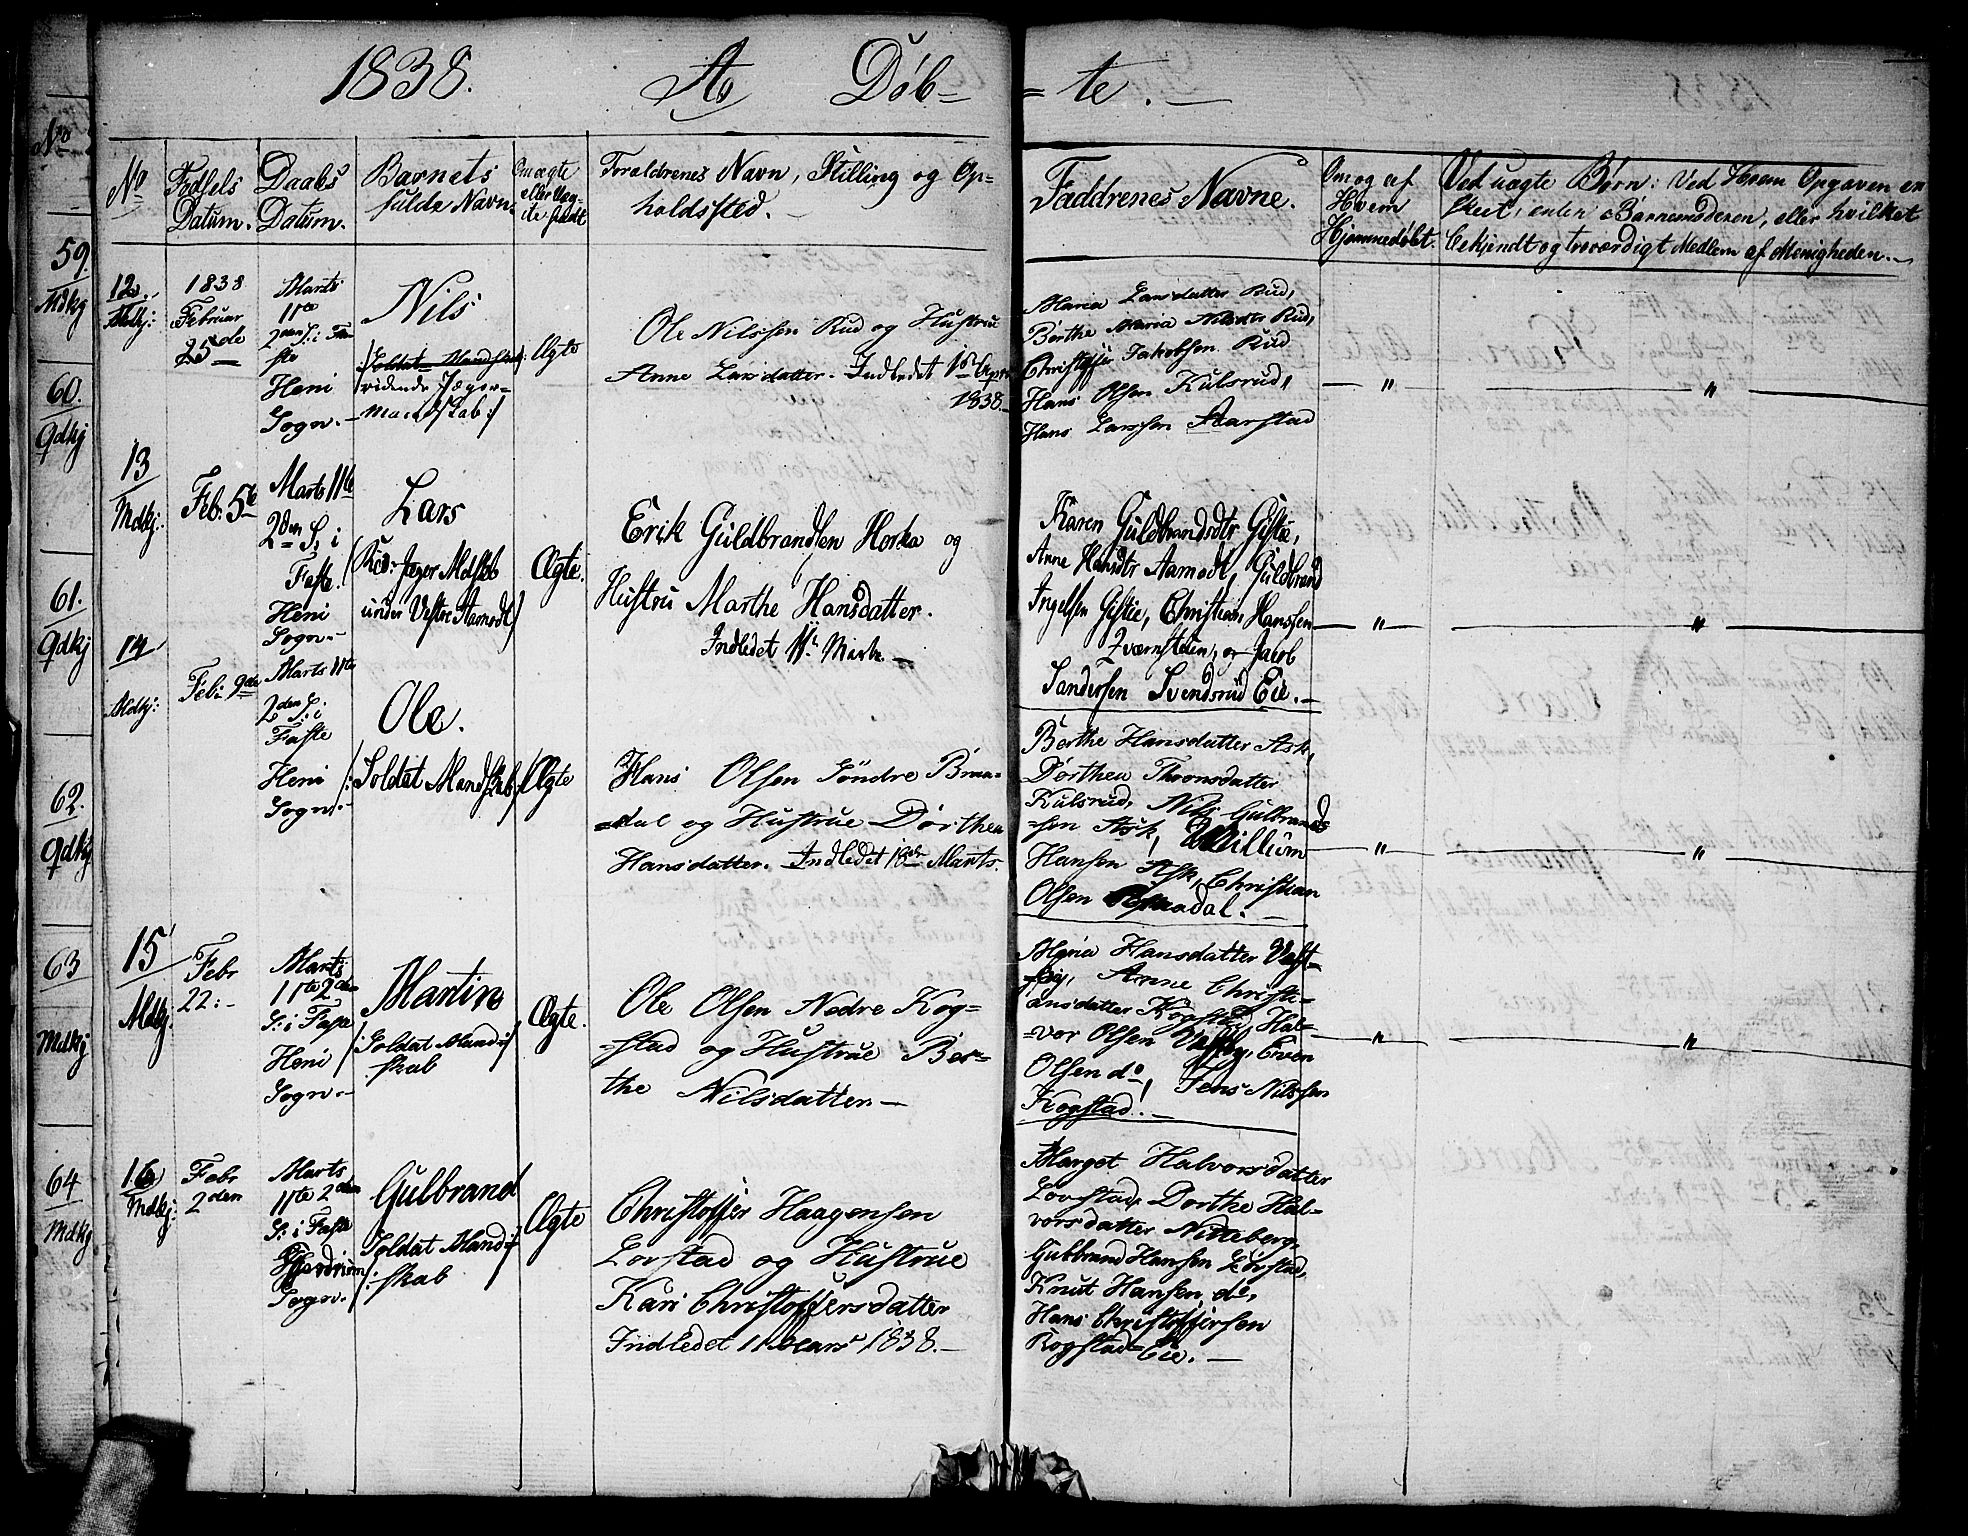 1838. A, Døb= =te. —
No
Fødsels Datum.
Daabs Datum.
Barnets fulde Navn.
Om ægte eller Uægte født
Foraldrenes Navn, Stilling og Op=
holdssted. —
Faddrenes Navne.
Om og af Hvem Hjemmedøbt.
Ved uægte Børn: Ved Hvem Opgaven er
skeet, enten Barnemoderen, eller hvilket
bekjendt og troværdigt Medlem af Menigheden. —
No
59.
Mdkj
60.
Qdkj
61.
Qdkj
62.
Qdkj
63
Mdkj
64
Mdkj
12.
Mdkj:
1838
Februar
25de
Marts
11te
2den S: i Fa=
ste
Heni
Sogn. —
Nils
/:Soldat Mandskab:
vidende Jæger=
mandskab:/
Ægte
Ole Nilssen Rud og Hustrue
Anne Larsdatter. Indledet 1ste Apr
1838.—
Maria Larsdatter Rud,
Berthe Maria Nilsdtr Rud,
Christoffer Jakobsen Rud
Hans Olsen Kulsrud,
Hans Larssen Aarstad
— " — — " —
13
Mdkj:
Feb: 5te
Marts 11te
2den S: i
Faste.
Heni
Sogn.—
Lars
under Vestre Aamodt/
Ægte.
Erik Guldbrandsen Horka og
Hustru Marthe Hansdatter.
Indledet 11te Marts —
Karen Guldbrandsdtr Gistie,
Anne Hansdtr Aamodt, Guldbrand
Ingelsen Gistie, Christian Hanssen
Kværnstuen, og Jacob
Sandersen Svendsrud Eie. —
— " — — " —
14
Mdkj:
Feb: 9de
Marts 11te
2den S: i
Faste
Heni
Sogn. —
Ole.
/:Soldat Mandskab/
Ægte
Hans Olsen Søndre Braa=
=dal og Hustrue Dørthea
Hansdatter. Indledet 18de Marts.
Berthe Hansdatter Ask,
Dørthea Thronsdatter
Kulsrud, Nils Gulbrands=
=sen Ask, Willium
Hansen Ask, Christian
Olsen Braadal. —
— " — — " —
15
Mdkj.
Febr
22: -
Marts
11te 2den
S: i Faste
Heni
Sogn. —
Martin
/:Soldat Mand=/
skab
Ægte.
Ole Olsen Nedre Kog=
=stad og Hustrue Ber=
the Nilsdatter —
Maria Hansdatter Vest=
=by, Anne Christi=
ansdatter Kogstad, Hal=
=vor Olsen Vestby, Even
Olsen do, Jens Nilssen
Kogstad. —
— " — — " —
16
Mdkj:
Febr
2den
Marts
11te 2den
S: i Faste
Gjerdrum
Sogn. —
Gulbrand
/:Soldat Mand=/
skab
Ægte
Christoffer Haagensen
Lovstad og Hustrue
Kari Christoffersdatter
Indledet 11 Mars 1838. —
Marget Halvorsdatter
Lovstad, Dorthe Hal=
vorsdatter Nittaberg,
Gulbrand Hansen Lovstad,
Knut Hansen do,
Hans Christoffersen
Rogstad=Eie. —